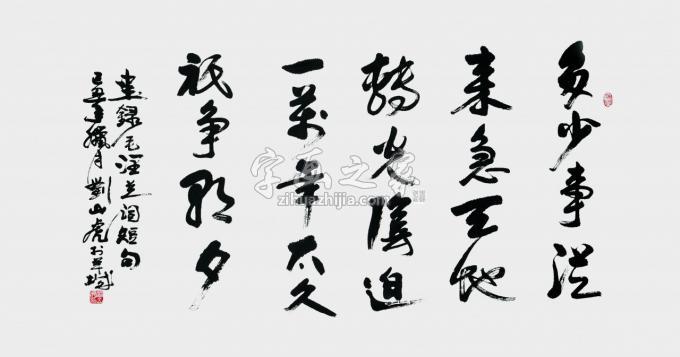 多少事從
来急天地
轉光陰迫
一萬年太久
祇争朝夕
書録毛泽东词短句
己丑年臘月劉山虎於羊城
字画之家
zihuazhijia.com